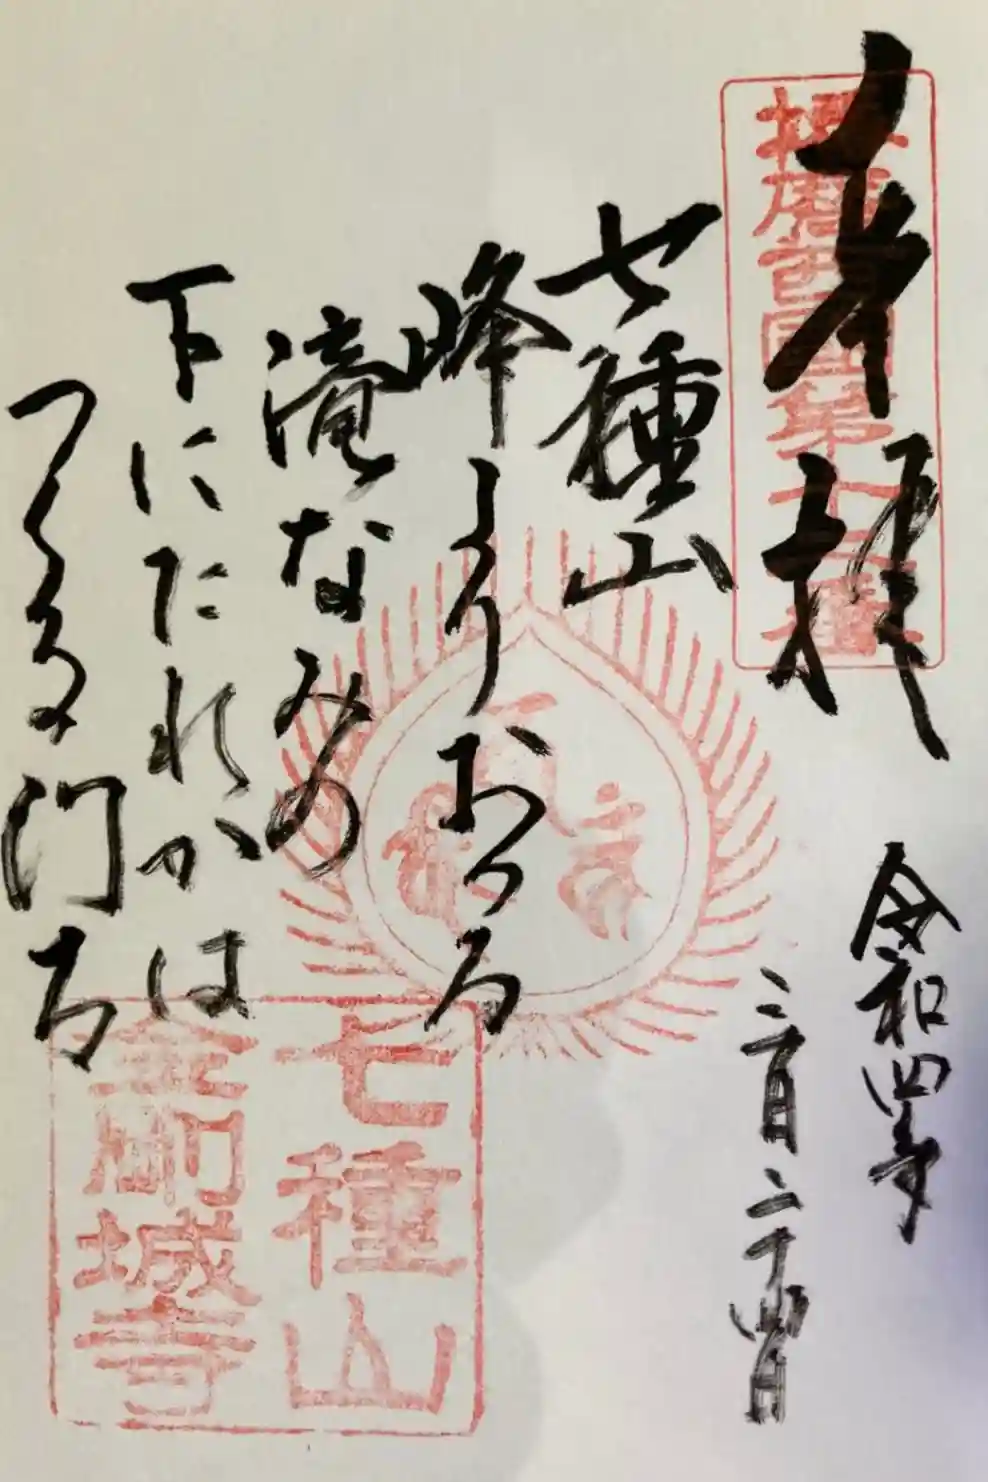 奉拝
播磨西國第十二番
令和四年
二月二十四日
七種山
峰よりおつる
滝なみの
下にたれかは
つくる門た
七種山
金剛城寺